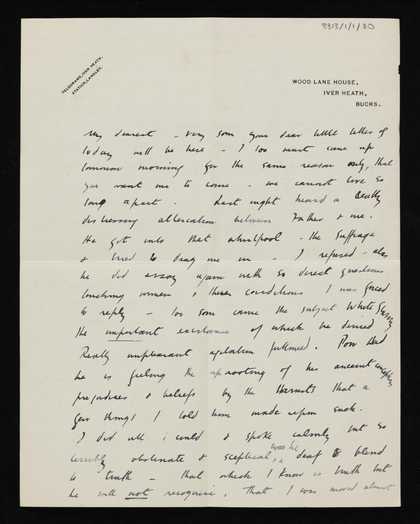 9313/1/1/30
TELEGRAMS, IVER HEATH.
STATION, LANGLEY.
WOOD LANE HOUSE,
IVER HEATH,
BUCKS.
My dearest - very soon your dear little letter of
today will be here - I too must come up
tomorrow morning for the same reason only, that
you want me to come - we cannot live so
long apart. - Last night heard a deadly
distressing altercation between Father & me.
He got into that whirlpool - the Suffrage
& tried to drag me in - I refused - also
he did essay upon with so direct questions
touching women & their conditions I was forced
to reply - too soon came the subject White Slavery,
the important existence of which he denied
Really unpleasant agitation followed. Poor Dad
he is feeling the uprooting of his ancient
prejudices & beliefs by the that a
few things I told him made upon such.
I did all I could & spoke calmly but so
terribly obstinate & sceptical, was he deaf & blind
to truth - that which I know is truth but
he will not recognise, that I was moved almost